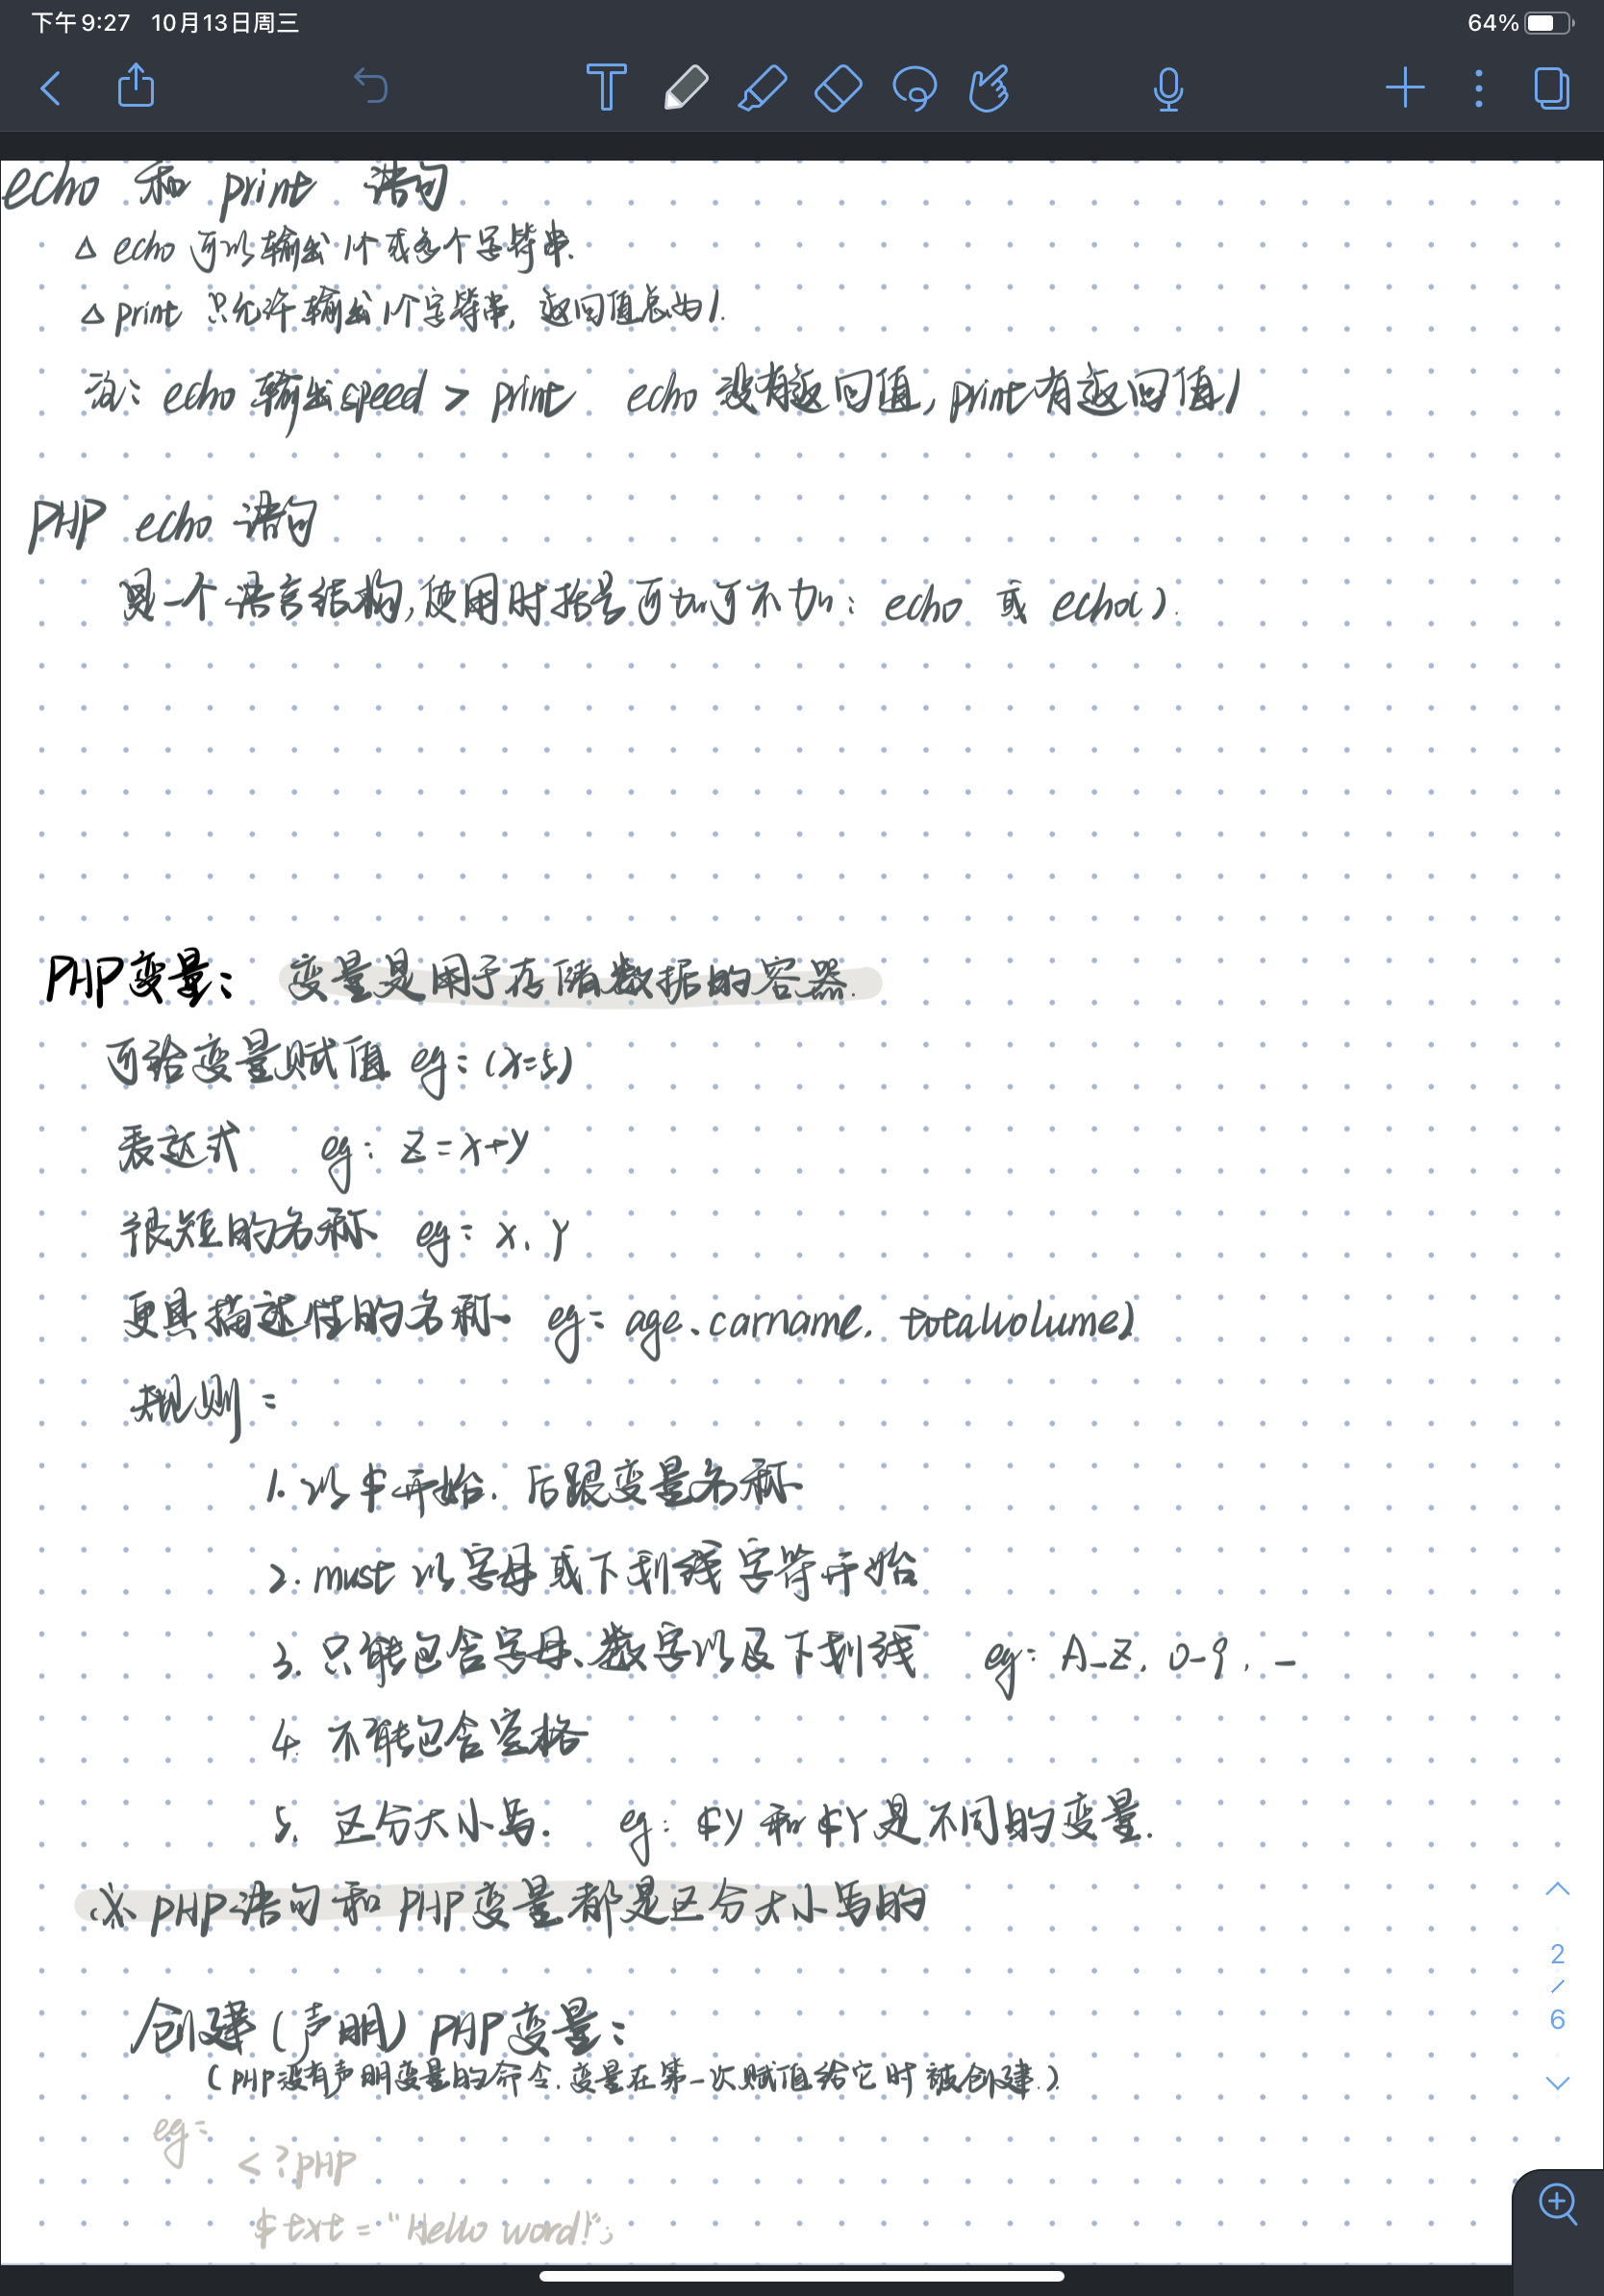 下午9:27 10月13日周三 64%
echo 和 print 语句
△ echo 可以输出1个或多个字符串.
△ print 只允许输出1个字符串, 返回值总为1.
注: echo 输出speed > print echo 没有返回值, print有返回值1
PHP echo 语句
是一个语言结构,使用时括号可加可不加: echo 或 echo().
PHP变量: 变量是用于存储数据的容器.
可给变量赋值 eg: (x=5)
表达式 eg: z=x+y
很短的名称 eg: x、y
更具描述性的名称 eg: age、carname、totalvolume)
规则:
1. 以$开始. 后跟变量名称
2. must 以字母或下划线字符开始
3. 只能包含字母、数字以及下划线 eg: A-Z、0-9、_
4. 不能包含空格
5. 区分大小写. eg: $y 和 $Y是不同的变量.
※ PHP语句和PHP变量都是区分大小写的
创建(声明)PHP变量:
(PHP没有声明变量的命令.变量在第一次赋值给它时被创建.)
eg:
<?PHP
$txt = "Hello word!";
2
/
6